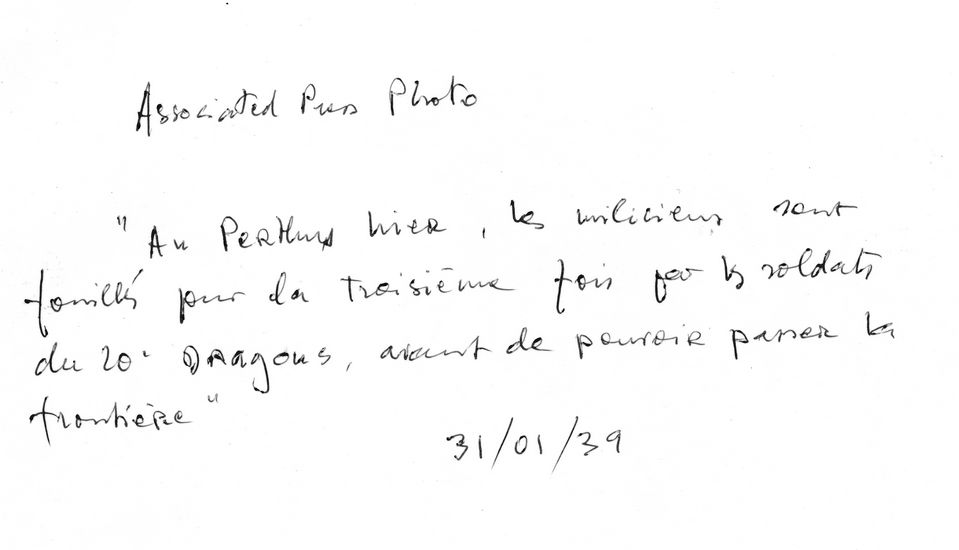 Associated Press Photo
" Au Perthus hier, les miliciens sont
fouillés pour la troisième fois par les soldats
du 20e Dragons, avant de pouvoir passer la
frontière "
31/01/39